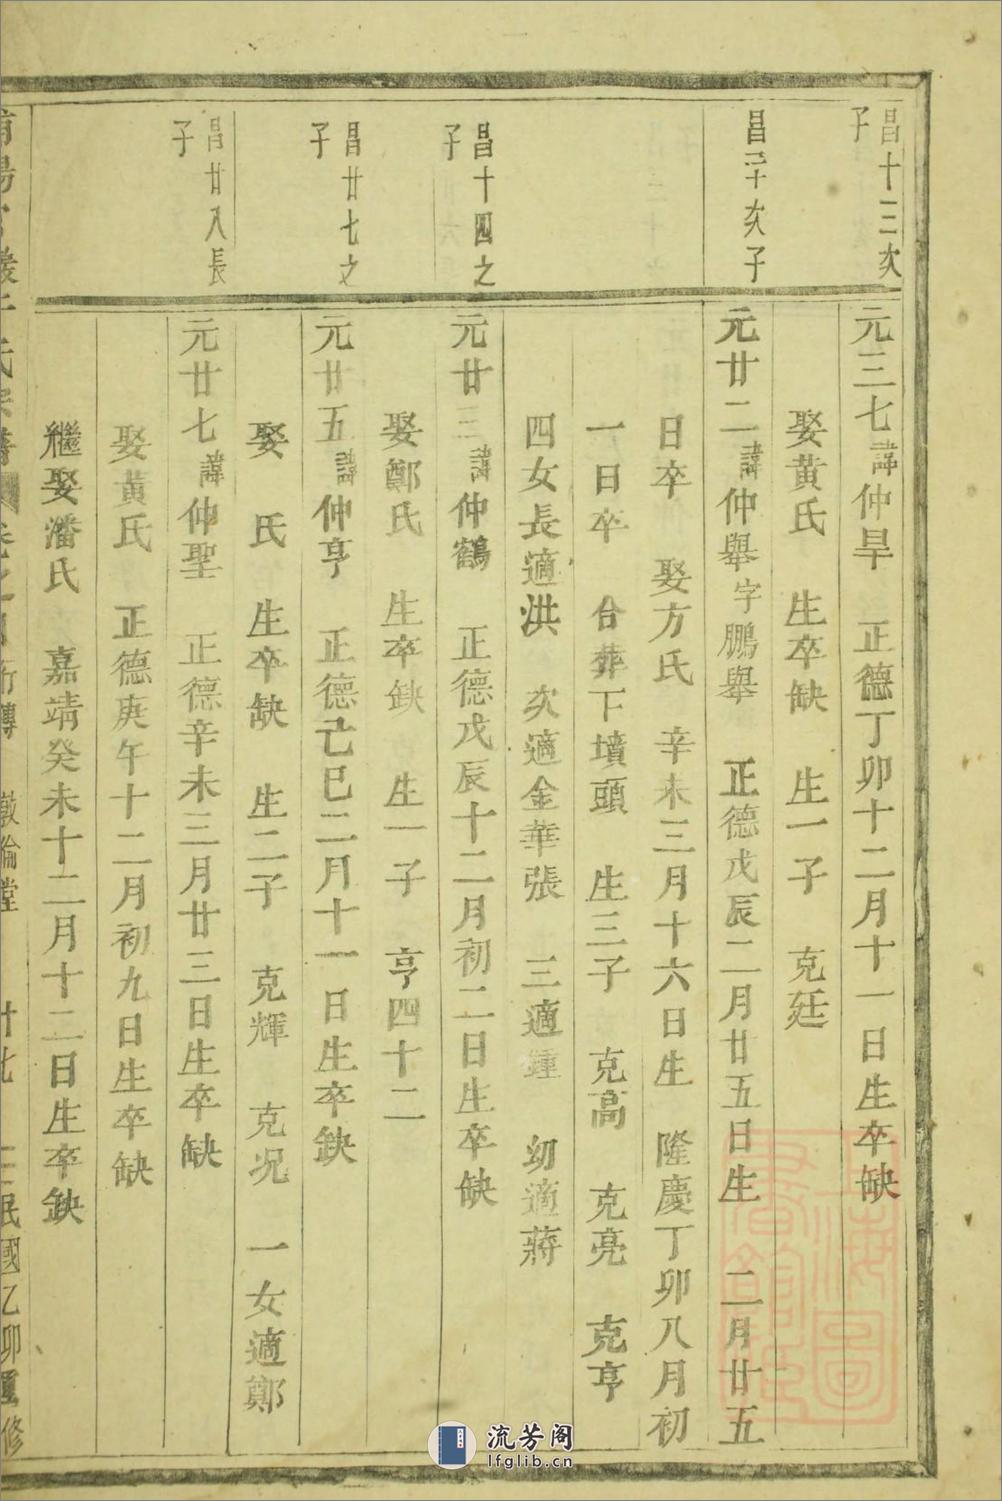 昌十三次
子
元三七諱仲旱　正德丁卯十二月十一日生卒缺
娶黃氏　生卒缺　生一子　克廷
昌二十次子
元廿二諱仲舉字鵬舉　正德戊辰二月廿五日生　二月廿五
日卒　娶方氏　辛未三月十六日生　隆慶丁卯八月初
一日卒　合葬下墳頭　生三子　克高　克亮　克亨
四女長適洪　次適金華張　三適鍾　幼適蔣
昌十四之
子
元廿三諱仲鶴　正德戊辰十二月初二日生卒缺
娶鄭氏　生卒缺　生一子　亨四十二
昌廿七之
子
元廿五諱仲亨　正德己巳二月十一日生卒缺
娶　氏　生卒缺　生二子　克輝　克況　一女適鄭
昌廿八長
子
元廿七諱仲聖　正德辛未三月廿三日生卒缺
娶黃氏　正德庚午十二月初九日生卒缺
繼娶潘氏　嘉靖癸未十二月十二日生卒缺
敦倫堂
民國乙卯重修
上海圖書館藏
流芳阁
lfglib.cn